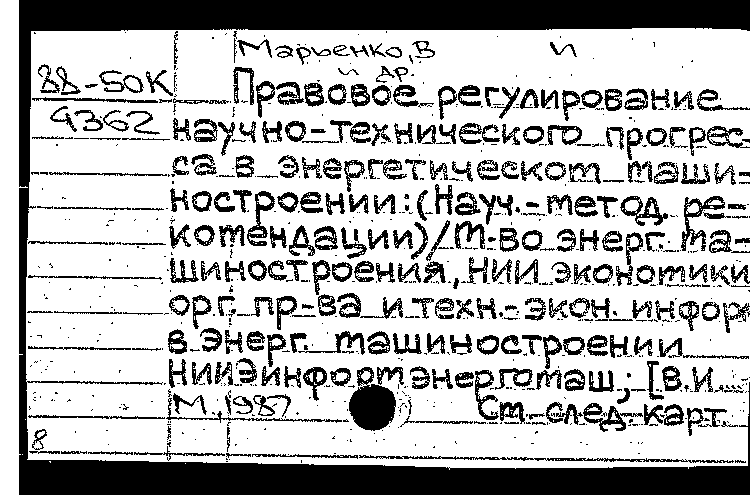 Марьенко, В и
и др.
88-50К Правовое регулирование
4362 научно-технического прогрес-
са в энергетическом маши-
ностроении: (Науч.-метод. ре-
комендации) / М-во энерг. ма-
шиностроения, НИИ экономики
орг. пр-ва и техн.-экон. информ
в энерг. машиностроении
НИИЭинформэнергомаш; [В.И....
М., 1987. См. след. карт.
8